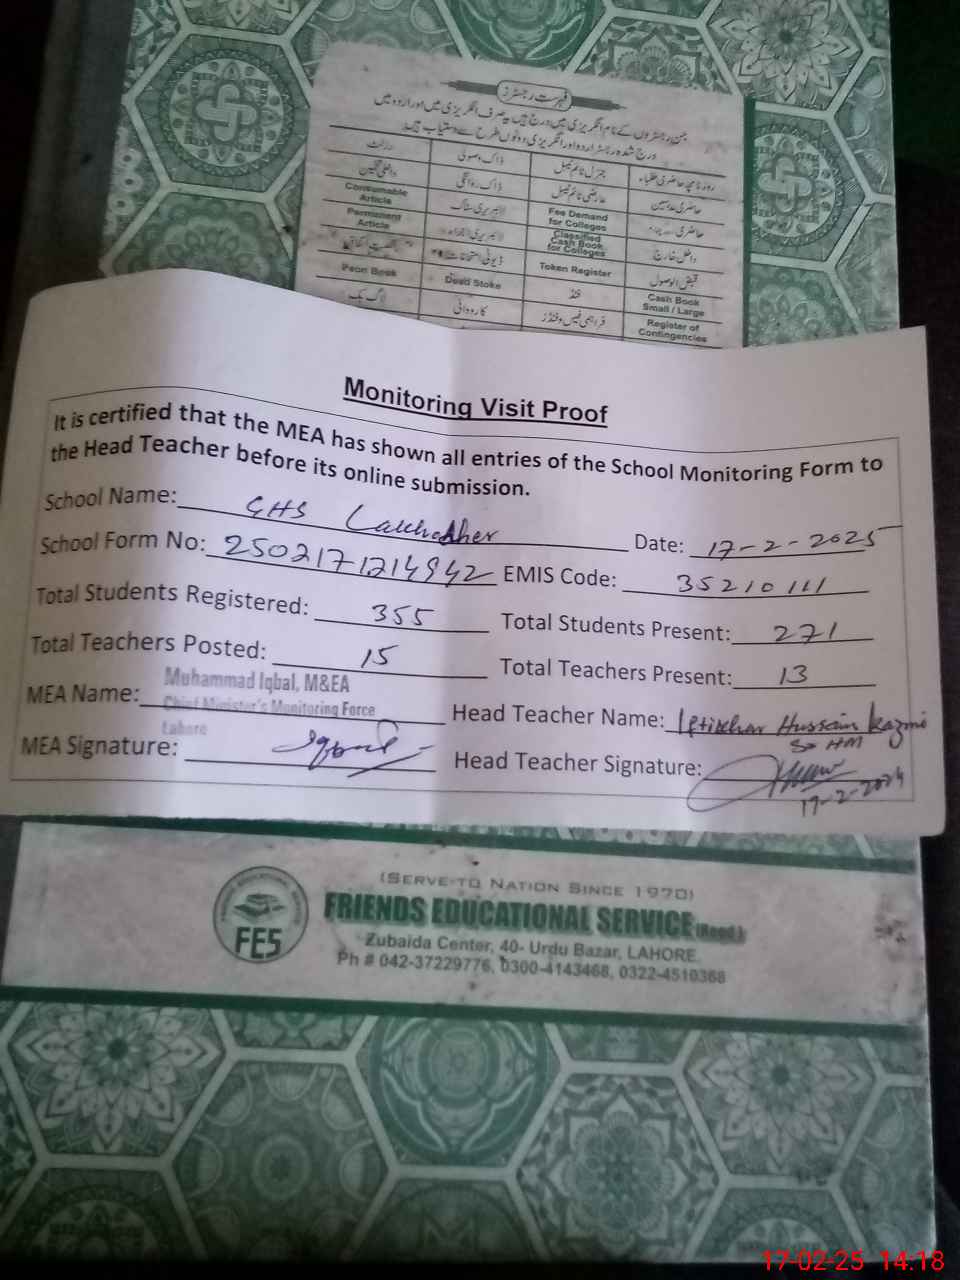 فہرست رجسٹرز
جن رجسٹروں کے نام انگریزی میں درج ہیں یہ صرف انگریزی میں اور اردو میں
درج شدہ رجسٹر اردو اور انگریزی دونوں طرح سے دستیاب ہیں
روزنامچہ حاضری طلباء جنرل ٹائم ٹیبل ڈاک وصولی
حاضری مدرسین عارضی ٹائم ٹیبل ڈاک روانگی داخلی نگین
Consumable Article لائبریری سٹاک Fee Demand for Colleges حاضری
Permanent Article لائبریری اجراء Classified Cash Book for Colleges داخل خارج
Token Register قبض الوصول
Peon Book Dead Stoke فنڈ Cash Book Small / Large
لاگ بک کاروائی فراہمی فیس و فنڈز Register of Contingencies
Monitoring Visit Proof
It is certified that the MEA has shown all entries of the School Monitoring Form to
the Head Teacher before its online submission.
School Name: GHS Lakhodher Date: 17-2-2025
School Form No: 2502171214942 EMIS Code: 35210111
Total Students Registered: 355 Total Students Present: 271
Total Teachers Posted: 15 Total Teachers Present: 13
MEA Name: Muhammad Iqbal, M&EA
Chief Minister's Monitoring Force
Lahore
Head Teacher Name: Iftikhar Hussain Kazmi
HM
MEA Signature: Iqbal Head Teacher Signature:
17-2-2024
(SERVE TO NATION SINCE 1970)
FES
FRIENDS EDUCATIONAL SERVICE (Regd.)
Zubaida Center, 40- Urdu Bazar, LAHORE.
Ph # 042-37229776, 0300-4143468, 0322-4510368
17-02-25 14:18